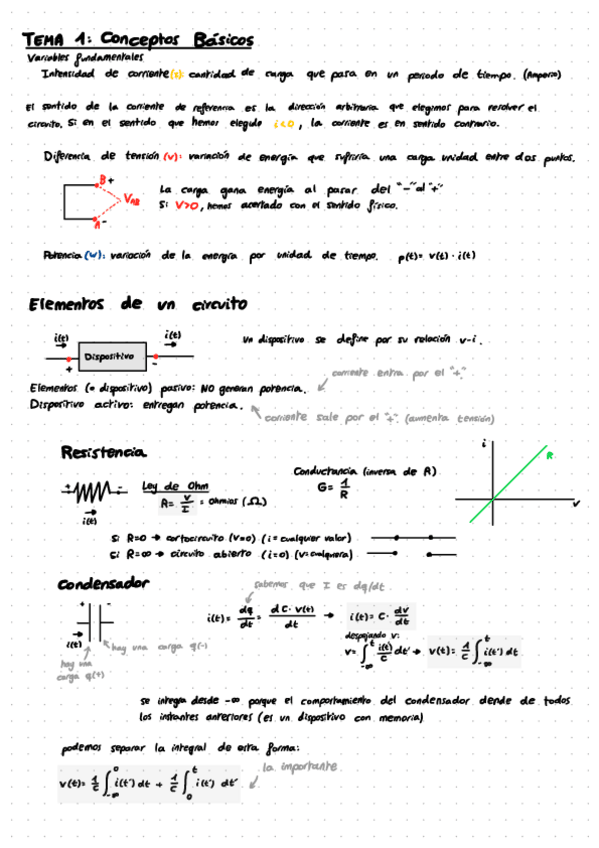 TEMA 1: Conceptos Básicos
Variables fundamentales
Intensidad de corriente (i): cantidad de carga que pasa en un periodo de tiempo. (Amperio)
El sentido de la corriente de referencia es la dirección arbitraria que elegimos para resolver el
circuito. Si en el sentido que hemos elegido i<0, la corriente es en sentido contrario.
Diferencia de tensión (v): variación de energía que sufriría una carga unidad entre dos puntos.
B +
VAB
A -
La carga gana energía al pasar del "-" al "+"
Si V>0, hemos acertado con el sentido físico.
Potencia (w): variación de la energía por unidad de tiempo. p(t)= v(t) · i(t)
Elementos de un circuito
i(t) i(t)
Dispositivo
+ -
Un dispositivo se define por su relación v-i.
corriente entra por el "+".
Elementos (o dispositivo) pasivo: NO generan potencia.
Dispositivo activo: entregan potencia.
corriente sale por el "+". (aumenta tensión)
Resistencia
+ -
i(t)
Ley de Ohm
R= V/I = Ohmios (Ω)
Conductancia (inversa de R)
G= 1/R
i
R
v
Si R=0 → cortocircuito (V=0) (i= cualquier valor)
Si R=∞ → circuito abierto (i=0) (v= cualquiera)
Condensador
sabemos que I es dq/dt.
+ -
i(t)
hay una carga q(-)
hay una
carga q(+)
i(t)= dq/dt = d C· v(t)/dt → i(t)= C· dv/dt
despejando v:
v= ∫_{-∞}^{t} i(t)/C dt' → v(t)= 1/C ∫_{-∞}^{t} i(t') dt
se integra desde -∞ porque el comportamiento del condensador depende de todos
los instantes anteriores (es un dispositivo con memoria)
podemos separar la integral de esta forma:
la importante
v(t)= 1/C ∫_{-∞}^{0} i(t') dt + 1/C ∫_{0}^{t} i(t') dt'